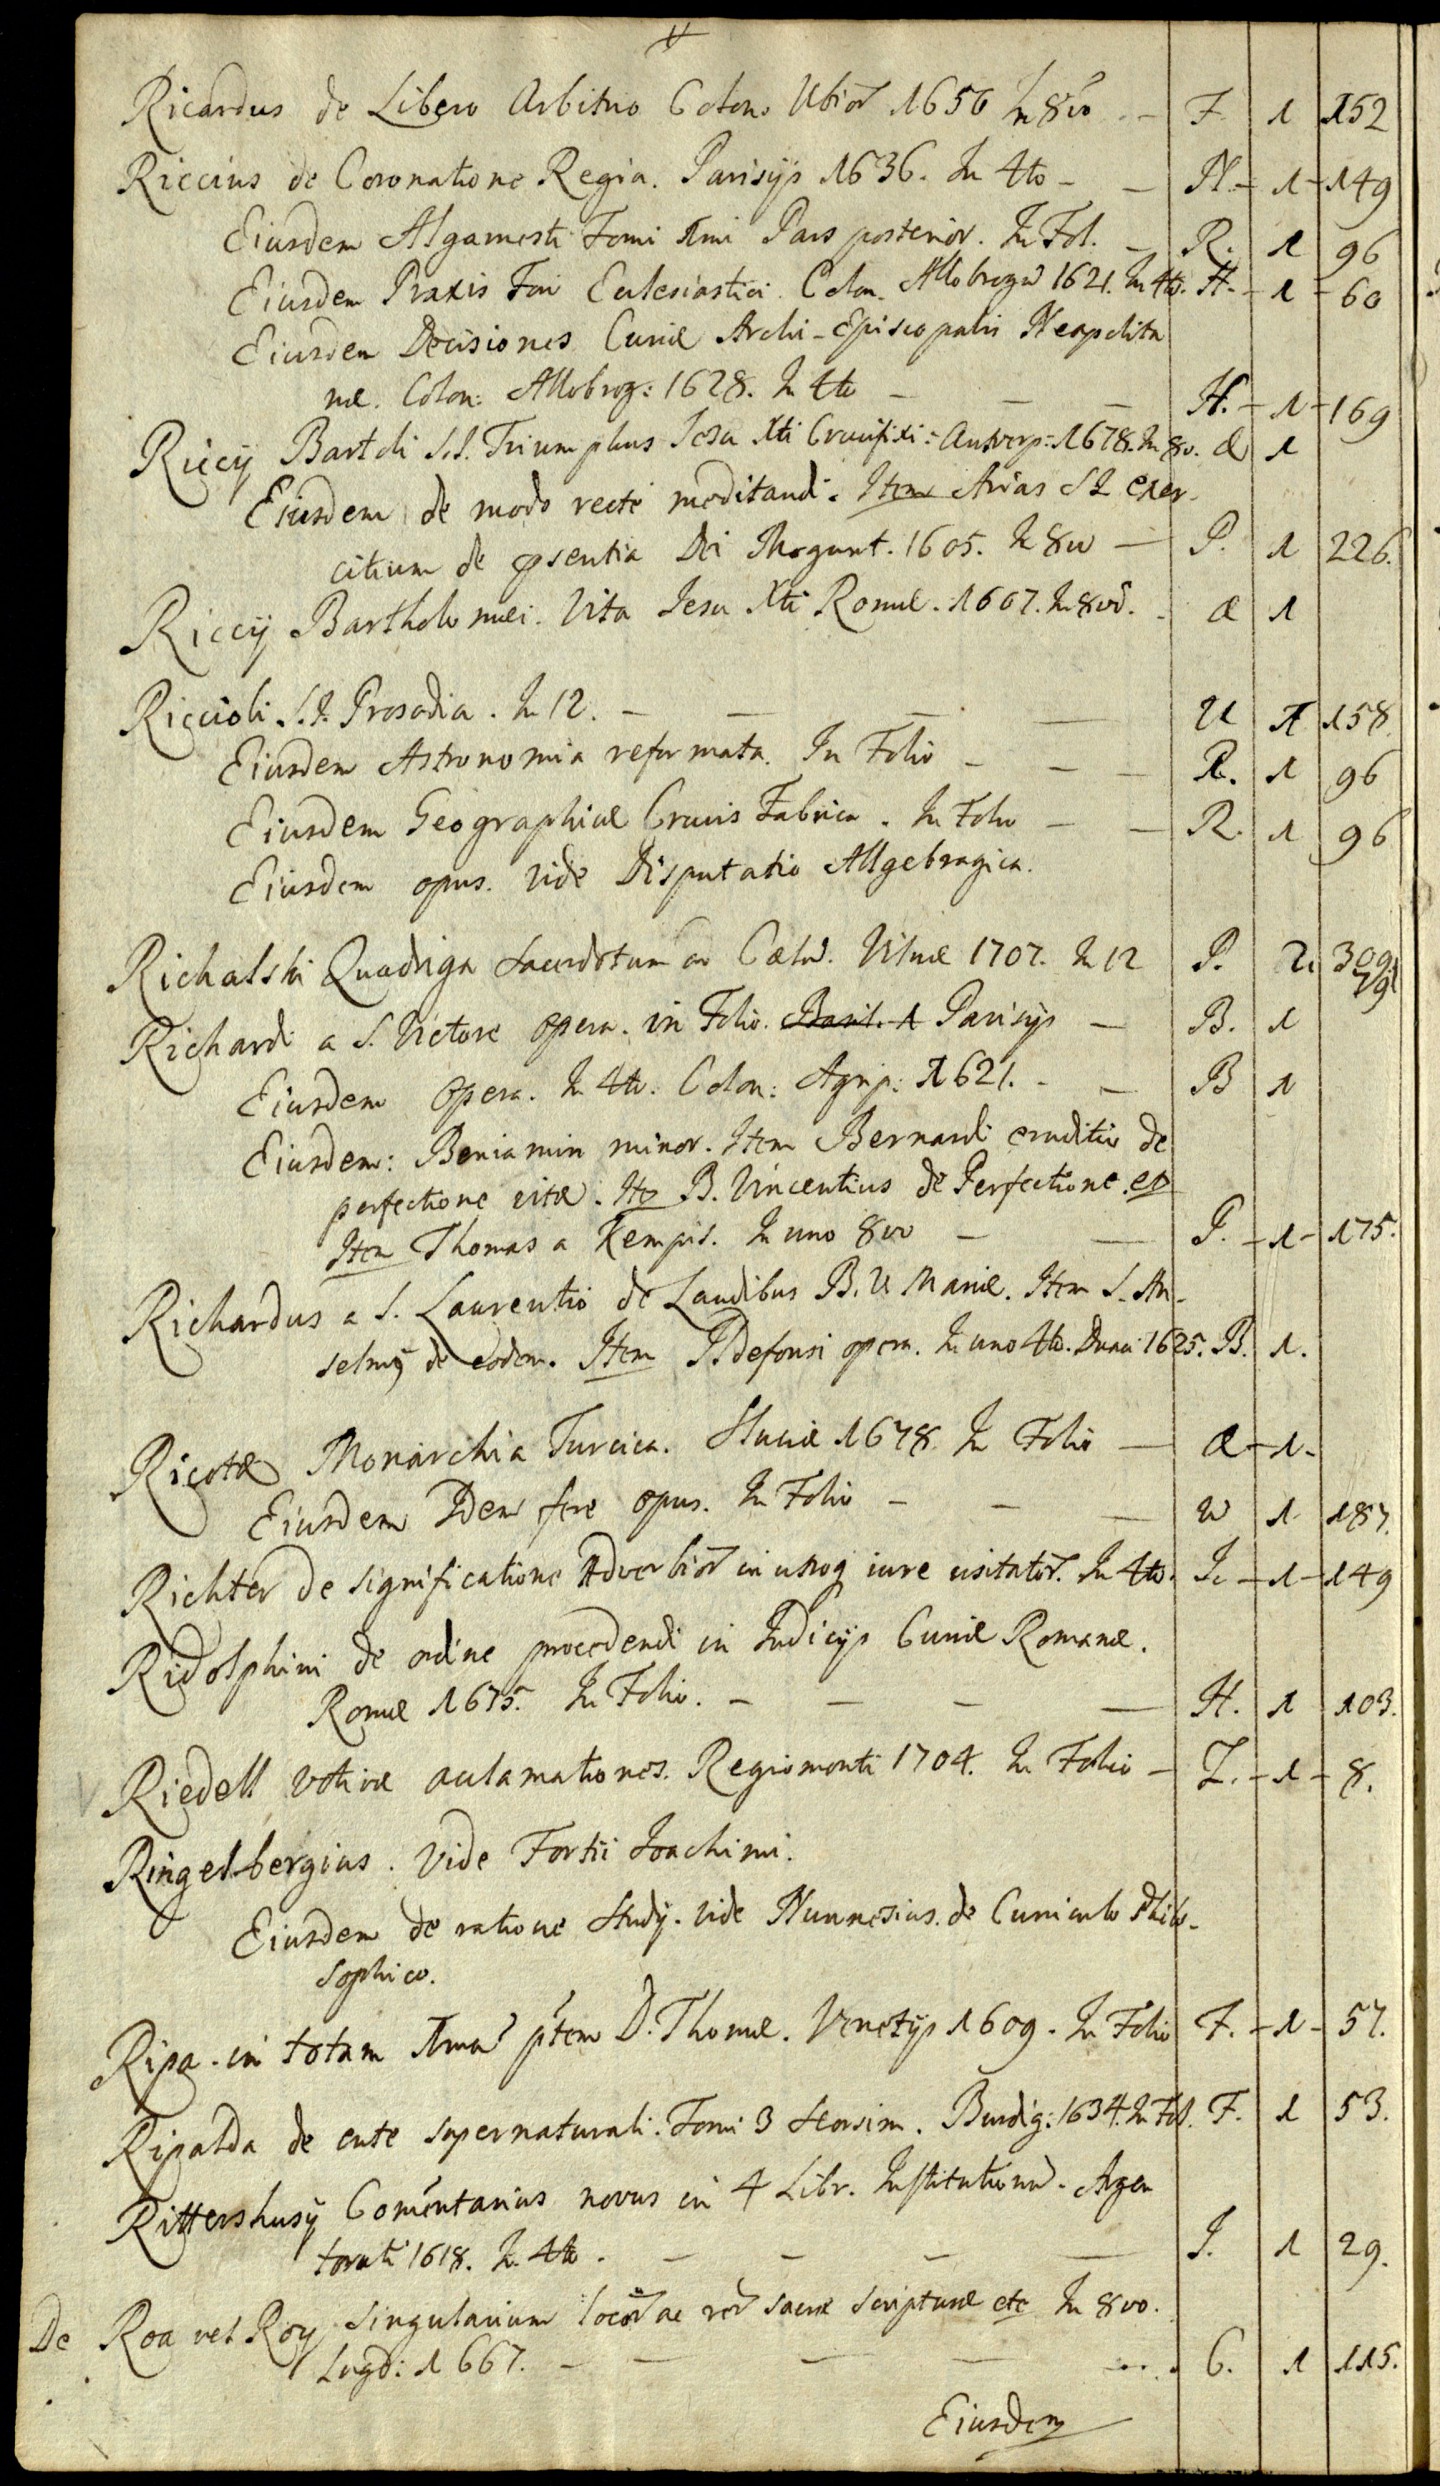 Ricardus de Libero Arbitrio Colon. Ubior 1656 In 8vo - F. 1 152
Riccius de Coronatione Regia. Parisijs 1636. In 4to - - H. - 1 - 149
Eiusdem Algamesti Tomi 1mi Pars posterior. In Fol. - R. 1 96
Eiusdem Praxis Fori Eclesiastici. Colon. Allobrogu 1621. In 4to. H. - 1 - 60
Eiusdem Decisiones Curiæ Archi-Episcopalis Neapolita
næ. Colon: Allobrog: 1628. In 4to - - - H. - 1 - 169
Riccij Bartoli S.J. Triumphus Jesu Xti Crucifixi: Antverp: 1678. In 8v. Æ 1
Eiusdem de modo recte meditandi. Item Arias S I exer-
citium de psentia Dei Mogunt. 1605. In 8vo - P. 1 226.
Riccij Bartholomæi. Vita Jesu Xti Romæ. 1607. In 8vo. - Æ 1
Riccioli S.J. Prosodia. In 12. - - - - U 1 158.
Eiusdem Astronomia reformata. In Folio - - - R. 1 96
Eiusdem Geographiæ Crucis Fabrica. In Folio - - R. 1 96
Eiusdem opus. Vide Disputatio Allgebragica.
Richalski Quadriga Sacerdotum in Cælu. Vilnæ 1707. In 12 P. 2. 309.
Richardi a S. Victore opera. in Folio. Basil. 1 Parisijs - B. 1
Eiusdem opera. In 4to. Colon: Agrip: 1621. - - B 1
Eiusdem: Beniamin minor. Item Bernardi eruditio de
perfectione vitæ. Ite B. Vincentius de Perfectione.
Item Thomas a Kempis. In uno 8vo - - P. - 1 - 175.
Richardus a S. Laurentio de Laudibus B.V. Mariæ. Item S. An-
selmij de eodem. Item Ildefonsi opera. In uno 4to. Duaci 1625. B. 1.
Ricotæ Monarchia Turcica. Sluciæ 1678. In Folio - Æ - 1 -
Eiusdem Idem fere opus. In Folio - - - W 1 187.
Richter de significatione Adverbior in utroq iure usitator. In 4to. J. - 1 - 149
Ridolphini de ordine procedendi in Judicijs Curiæ Romanæ.
Romæ 1675. In Folio. - - - - H. 1 103.
Riedell votivæ aclamationes. Regiomonti 1704. In Folio - Z. - 1 - 8.
Ringelbergius. Vide Fortii Joachimi.
Eiusdem de ratione Study. Vide Nunnesius. de Curriculo Philo-
sophico.
Ripa. in totam 1ma ptem D. Thomæ. Venetijs 1609. In Folio F. - 1 - 57.
Ripalda de ente supernaturali. Tomi 3 seorsim. Burdig: 1634. In Fol. F. 1 53.
Rittershusij Comentarius novus in 4 Libr. Institutionu. Argen
torati 1618. In 4to. - - - - J. 1 29.
De Roa vel Roy singularium locor ac rer sacræ Scripturæ etc In 8vo.
Lugd: 1667. - - - - - C. 1 115.
Eiusdem